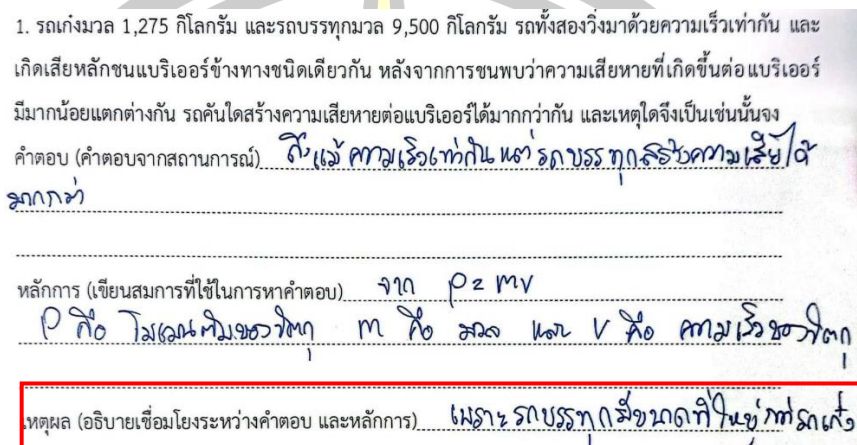 1. รถเก๋งมวล 1,275 กิโลกรัม และรถบรรทุกมวล 9,500 กิโลกรัม รถทั้งสองวิ่งมาด้วยความเร็วเท่ากัน และ
เกิดเสียหลักชนแบริเออร์ข้างทางชนิดเดียวกัน หลังจากการชนพบว่าความเสียหายที่เกิดขึ้นต่อแบริเออร์
มีมากน้อยแตกต่างกัน รถคันใดสร้างความเสียหายต่อแบริเออร์ได้มากกว่ากัน และเหตุใดจึงเป็นเช่นนั้นจง
คำตอบ (คำตอบจากสถานการณ์) ถึงแม้ ความเร็วเท่ากัน แต่ รถบรรทุกสร้างความเสียได้
มากกว่า
หลักการ (เขียนสมการที่ใช้ในการหาคำตอบ) จาก P = mv
P คือ โมเมนตัมของวัตถุ m คือ มวล และ v คือ ความเร็วของวัตถุ
เหตุผล (อธิบายเชื่อมโยงระหว่างคำตอบ และหลักการ) เพราะ รถบรรทุกมีขนาดที่ใหญ่กว่ารถเก๋ง